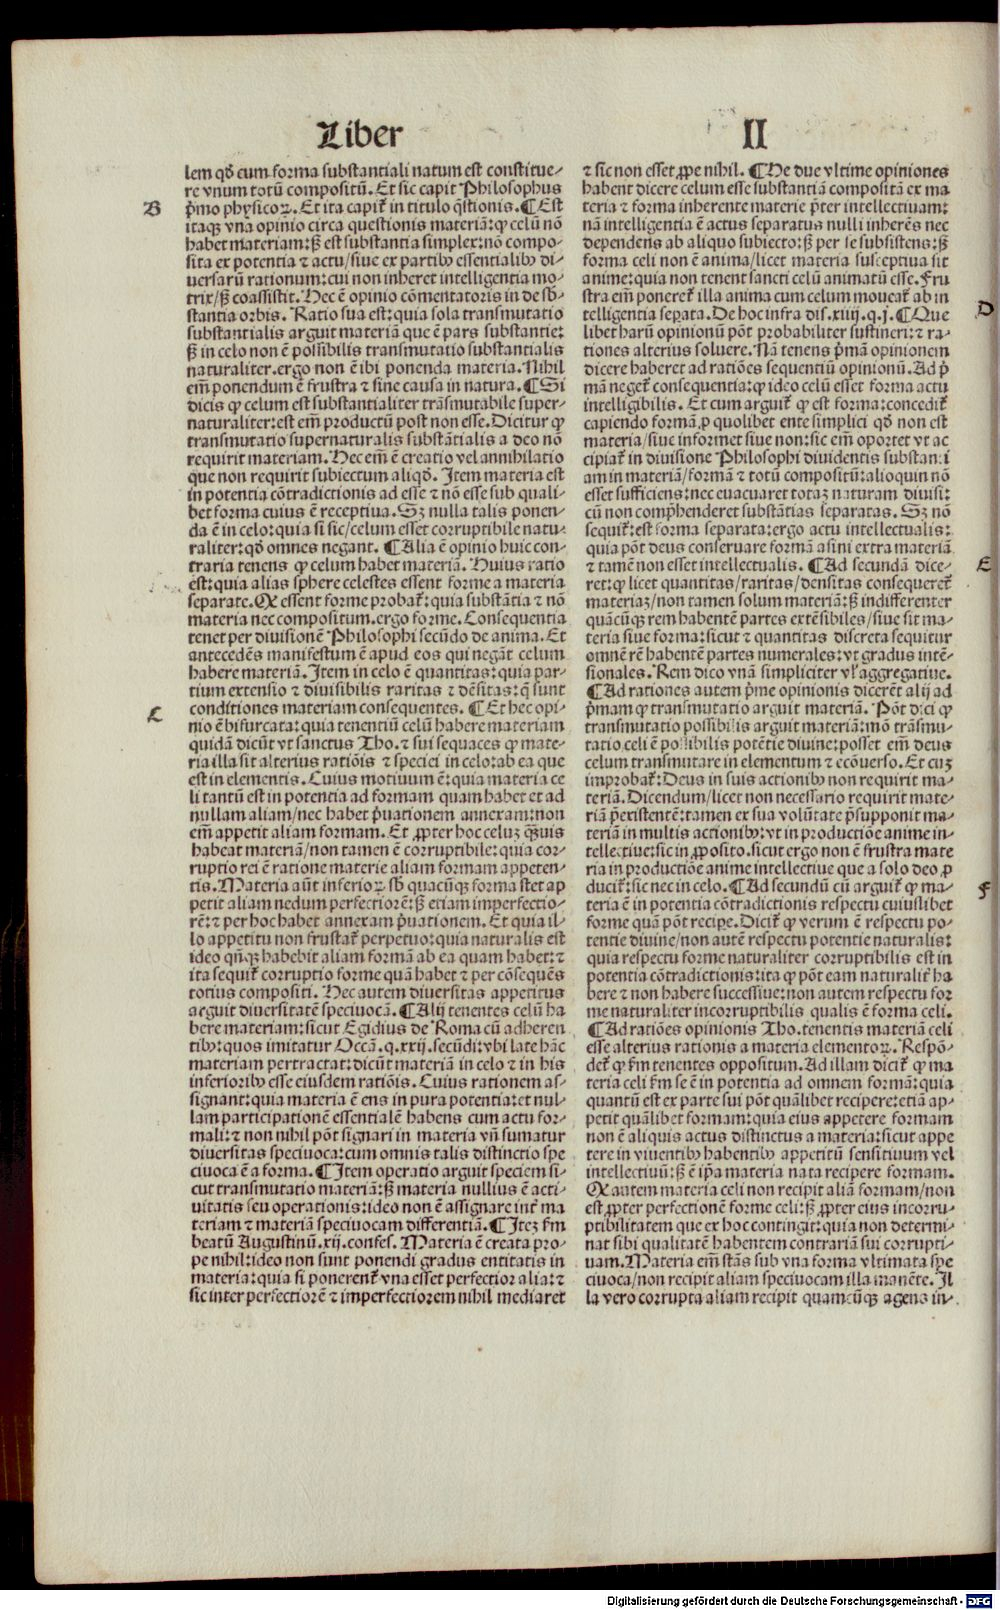 Liber
II
lem qđ cum forma substantiali natum est constitue-
re vnum totũ compositũ. Et sic capit Philosophus
p̃mo physicoꝝ. Et ita capiť in titulo q̃stionis. ¶ Est
B
itaqꝫ vna opinio circa questionis materiã: ꝙ celũ nõ
habet materiam: sꝫ est substantia simplex: nõ compo-
sita ex potentia ⁊ actu/ siue ex partibꝰ essentialibꝰ di-
uersarũ rationum: cui non inheret intelligentia mo-
trix/ sꝫ coassistit. Hec ẽ opinio cõmentatoris in de sb̃-
stantia orbis. Ratio sua est: quia sola transmutatio
substantialis arguit materiã que ẽ pars substantie:
sꝫ in celo non ẽ possibilis transmutatio substantialis
naturaliter. ergo non ẽ ibi ponenda materia. Nihil
em̃ ponendum ẽ frustra ⁊ sine causa in natura. ¶ Si
dicis ꝙ celum est substantialiter trãsmutabile super-
naturaliter: est em̃ productũ post non esse. Dicitur ꝙ
transmutatio supernaturalis substãtialis a deo nõ
requirit materiam. Hec em̃ ẽ creatio vel annihilatio
que non requirit subiectum aliqđ. Item materia est
in potentia cõtradictionis ad esse ⁊ nõ esse sub quali-
bet forma cuius ẽ receptiua. Sꝫ nulla talis ponen-
da ẽ in celo: quia si sic/ celum esset corruptibile natu-
raliter: qđ omnes negant. ¶ Alia ẽ opinio huic con-
traria tenens ꝙ celum habet materiã. Huius ratio
est: quia alias sphere celestes essent forme a materia
separate. Ꝙ essent forme probať: quia substãtia ⁊ nõ
materia nec compositum. ergo forme. Consequentia
tenet per diuisionẽ Philosophi secũdo de anima. Et
antecedẽs manifestum ẽ apud eos qui negãt celum
habere materiã. Item in celo ẽ quantitas: quia par-
tium extensio ⁊ diuisibilis raritas ⁊ dẽsitas: q̃ sunt
conditiones materiam consequentes. ¶ Et hec opi-
C
nio ẽ bifurcata: quia tenentiũ celũ habere materiam
quidã dicũt vt sanctus Tho. ⁊ sui sequaces ꝙ mate-
ria illa sit alterius ratiõis ⁊ speciei in celo: ab ea que
est in elementis. Cuius motiuum ẽ: quia materia ce
li tantũ est in potentia ad formam quam habet et ad
nullam aliam/ nec habet p̃uationem annexam: non
em̃ appetit aliam formam. Et ꝓpter hoc celuꝫ q̃ꝫuis
habeat materiã/ non tamen ẽ corruptibile: quia cor-
ruptio rei ẽ ratione materie aliam formam appeten-
tis. Materia aũt inferioꝝ sb̃ quacũqꝫ forma stet ap
petit aliam nedum perfectiorẽ: sꝫ etiam imperfectio-
rẽ: ⁊ per hoc habet annexam p̃uationem. Et quia il-
lo appetitu non frustať perpetuo: quia naturalis est
ideo qñqꝫ habebit aliam formã ab ea quam habet: ⁊
ita sequiť corruptio forme quã habet ⁊ per cõsequẽs
totius compositi. Hec autem diuersitas appetitus
arguit diuersitatẽ speciuocã. ¶ Alij tenentes celũ ha
bere materiam: sicut Egidius de Roma cũ adheren
tibꝰ: quos imitatur Occã. q. xxij. secũdi: vbi late hãc
materiam pertractat: dicũt materiã in celo ⁊ in his
inferioribꝰ esse eiusdem ratiõis. Cuius rationem as-
signant: quia materia ẽ ens in pura potentia: et nul-
lam participationẽ essentialẽ habens cum actu for-
mali: ⁊ non nihil põt signari in materia vñ sumatur
diuersitas speciuoca: cum omnis talis distinctio spe
ciuoca ẽ a forma. ¶ Item operatio arguit speciem si-
cut transmutatio materiã: sꝫ materia nullius ẽ acti-
uitatis seu operationis: ideo non ẽ assignare int̃ ma
teriam ⁊ materiã speciuocam differentiã. ¶ Iteꝫ fm̃
beatũ Augustinũ. xij. confes. Materia ẽ creata pro-
pe nihil: ideo non sunt ponendi gradus entitatis in
materia: quia si ponerenť vna esset perfectior alia: ⁊
sic inter perfectiorẽ ⁊ imperfectiorem nihil mediaret
⁊ sic non esset ꝓpe nihil. ¶ He due vltime opiniones
habent dicere celum esse substantiã compositã ex ma
teria ⁊ forma inherente materie p̃ter intellectiuam:
nã intelligentia ẽ actus separatus nulli inherẽs nec
dependens ab aliquo subiecto: sꝫ per se subsistens: sꝫ
forma celi non ẽ anima/ licet materia susceptiua sit
anime: quia non tenent sancti celũ animatũ esse. Fru
stra em̃ ponereť illa anima cum celum moueať ab in
telligentia separata. De hoc infra dis. xiiij. q. j. ¶ Que
D
libet harũ opinionũ põt probabiliter sustineri: ⁊ ra-
tiones alterius soluere. Nã tenens p̃mã opinionem
dicere haberet ad ratiões sequentiũ opinionũ. Ad p̃
mã negeť consequentia: ꝙ ideo celũ esset forma actu
intelligibilis. Et cum arguiť ꝙ est forma: concediť
capiendo formã ꝓ quolibet ente simplici qđ non est
materia/ siue informet siue non: sic em̃ oportet vt ac
cipiať in diuisione Philosophi diuidentis substanti
am in materiã/ formã ⁊ totũ compositũ: alioquin nõ
esset sufficiens: nec euacuaret totaꝫ naturam diuisi:
cũ non comp̃henderet substãtias separatas. Sꝫ nõ
sequiť: est forma separata: ergo actu intellectualis:
quia põt deus conseruare formã asini extra materiã
⁊ tamẽ non esset intellectualis. ¶ Ad secundã dice-
E
ret: ꝙ licet quantitas/ raritas/ densitas consequereť
materiaꝫ/ non tamen solum materiã: sꝫ indifferenter
quãcũqꝫ rem habentẽ partes extẽsibiles/ siue sit ma-
teria siue forma: sicut ⁊ quantitas discreta sequitur
omnẽ rẽ habentẽ partes numerales: vt gradus intẽ-
sionales. Rem dico vnã simpliciter vl' aggregatiue.
¶ Ad rationes autem p̃me opinionis dicerẽt alij ad
p̃mam ꝙ transmutatio arguit materiã. Põt dici ꝙ
transmutatio possibilis arguit materiã: mõ trãsmu-
tatio celi ẽ possibilis potẽtie diuine: posset em̃ deus
celum transmutare in elementum ⁊ ecõuerso. Et cuꝫ
improbať: Deus in suis actionibꝰ non requirit ma-
teriã. Dicendum/ licet non necessario requirit mate-
riã p̃existentẽ: tamen ex sua volũtate p̃supponit ma-
teriã in multis actionibꝰ: vt in productiõe anime in-
tellectiue: sic in ꝓposito. sicut ergo non ẽ frustra mate
ria in productiõe anime intellectiue que a solo deo ꝓ
duciť: sic nec in celo. ¶ Ad secundũ cũ arguiť ꝙ ma-
F
teria ẽ in potentia cõtradictionis respectu cuiuslibet
forme quã põt recipe. Diciť ꝙ verum ẽ respectu po-
tentie diuine/ non autẽ respectu potentie naturalis:
quia respectu forme naturaliter corruptibilis est in
potentia cõtradictionis: ita ꝙ põt eam naturaliť ha
bere ⁊ non habere successiue: non autem respectu for
me naturaliter incorruptibilis qualis ẽ forma celi.
¶ Ad ratiões opinionis Tho. tenentis materiã celi
esse alterius rationis a materia elementoꝝ. Respõ-
deť ꝙ fm̃ tenentes oppositum. Ad illam diciť ꝙ ma
teria celi fm̃ se ẽ in potentia ad omnem formã: quia
quantũ est ex parte sui põt quãlibet recipere: etiã ap-
petit quãlibet formam: quia eius appetere formam
non ẽ aliquis actus distinctus a materia: sicut appe
tere in viuentibꝰ habentibꝰ appetitũ sensitiuum vel
intellectiuũ: sꝫ ẽ ip̃a materia nata recipere formam.
Ꝙ autem materia celi non recipit aliã formam/ non
est ꝓpter perfectionẽ forme celi: sꝫ ꝓpter eius incorru-
ptibilitatem que ex hoc contingit: quia non determi-
nat sibi qualitatẽ habentem contrariã sui corrupti-
uam. Materia em̃ stãs sub vna forma vltimata spe
ciuoca/ non recipit aliam speciuocam illa manẽte. Il
la vero corrupta aliam recipit quamcũqꝫ agens in-
Digitalisierung gefördert durch die Deutsche Forschungsgemeinschaft - DFG